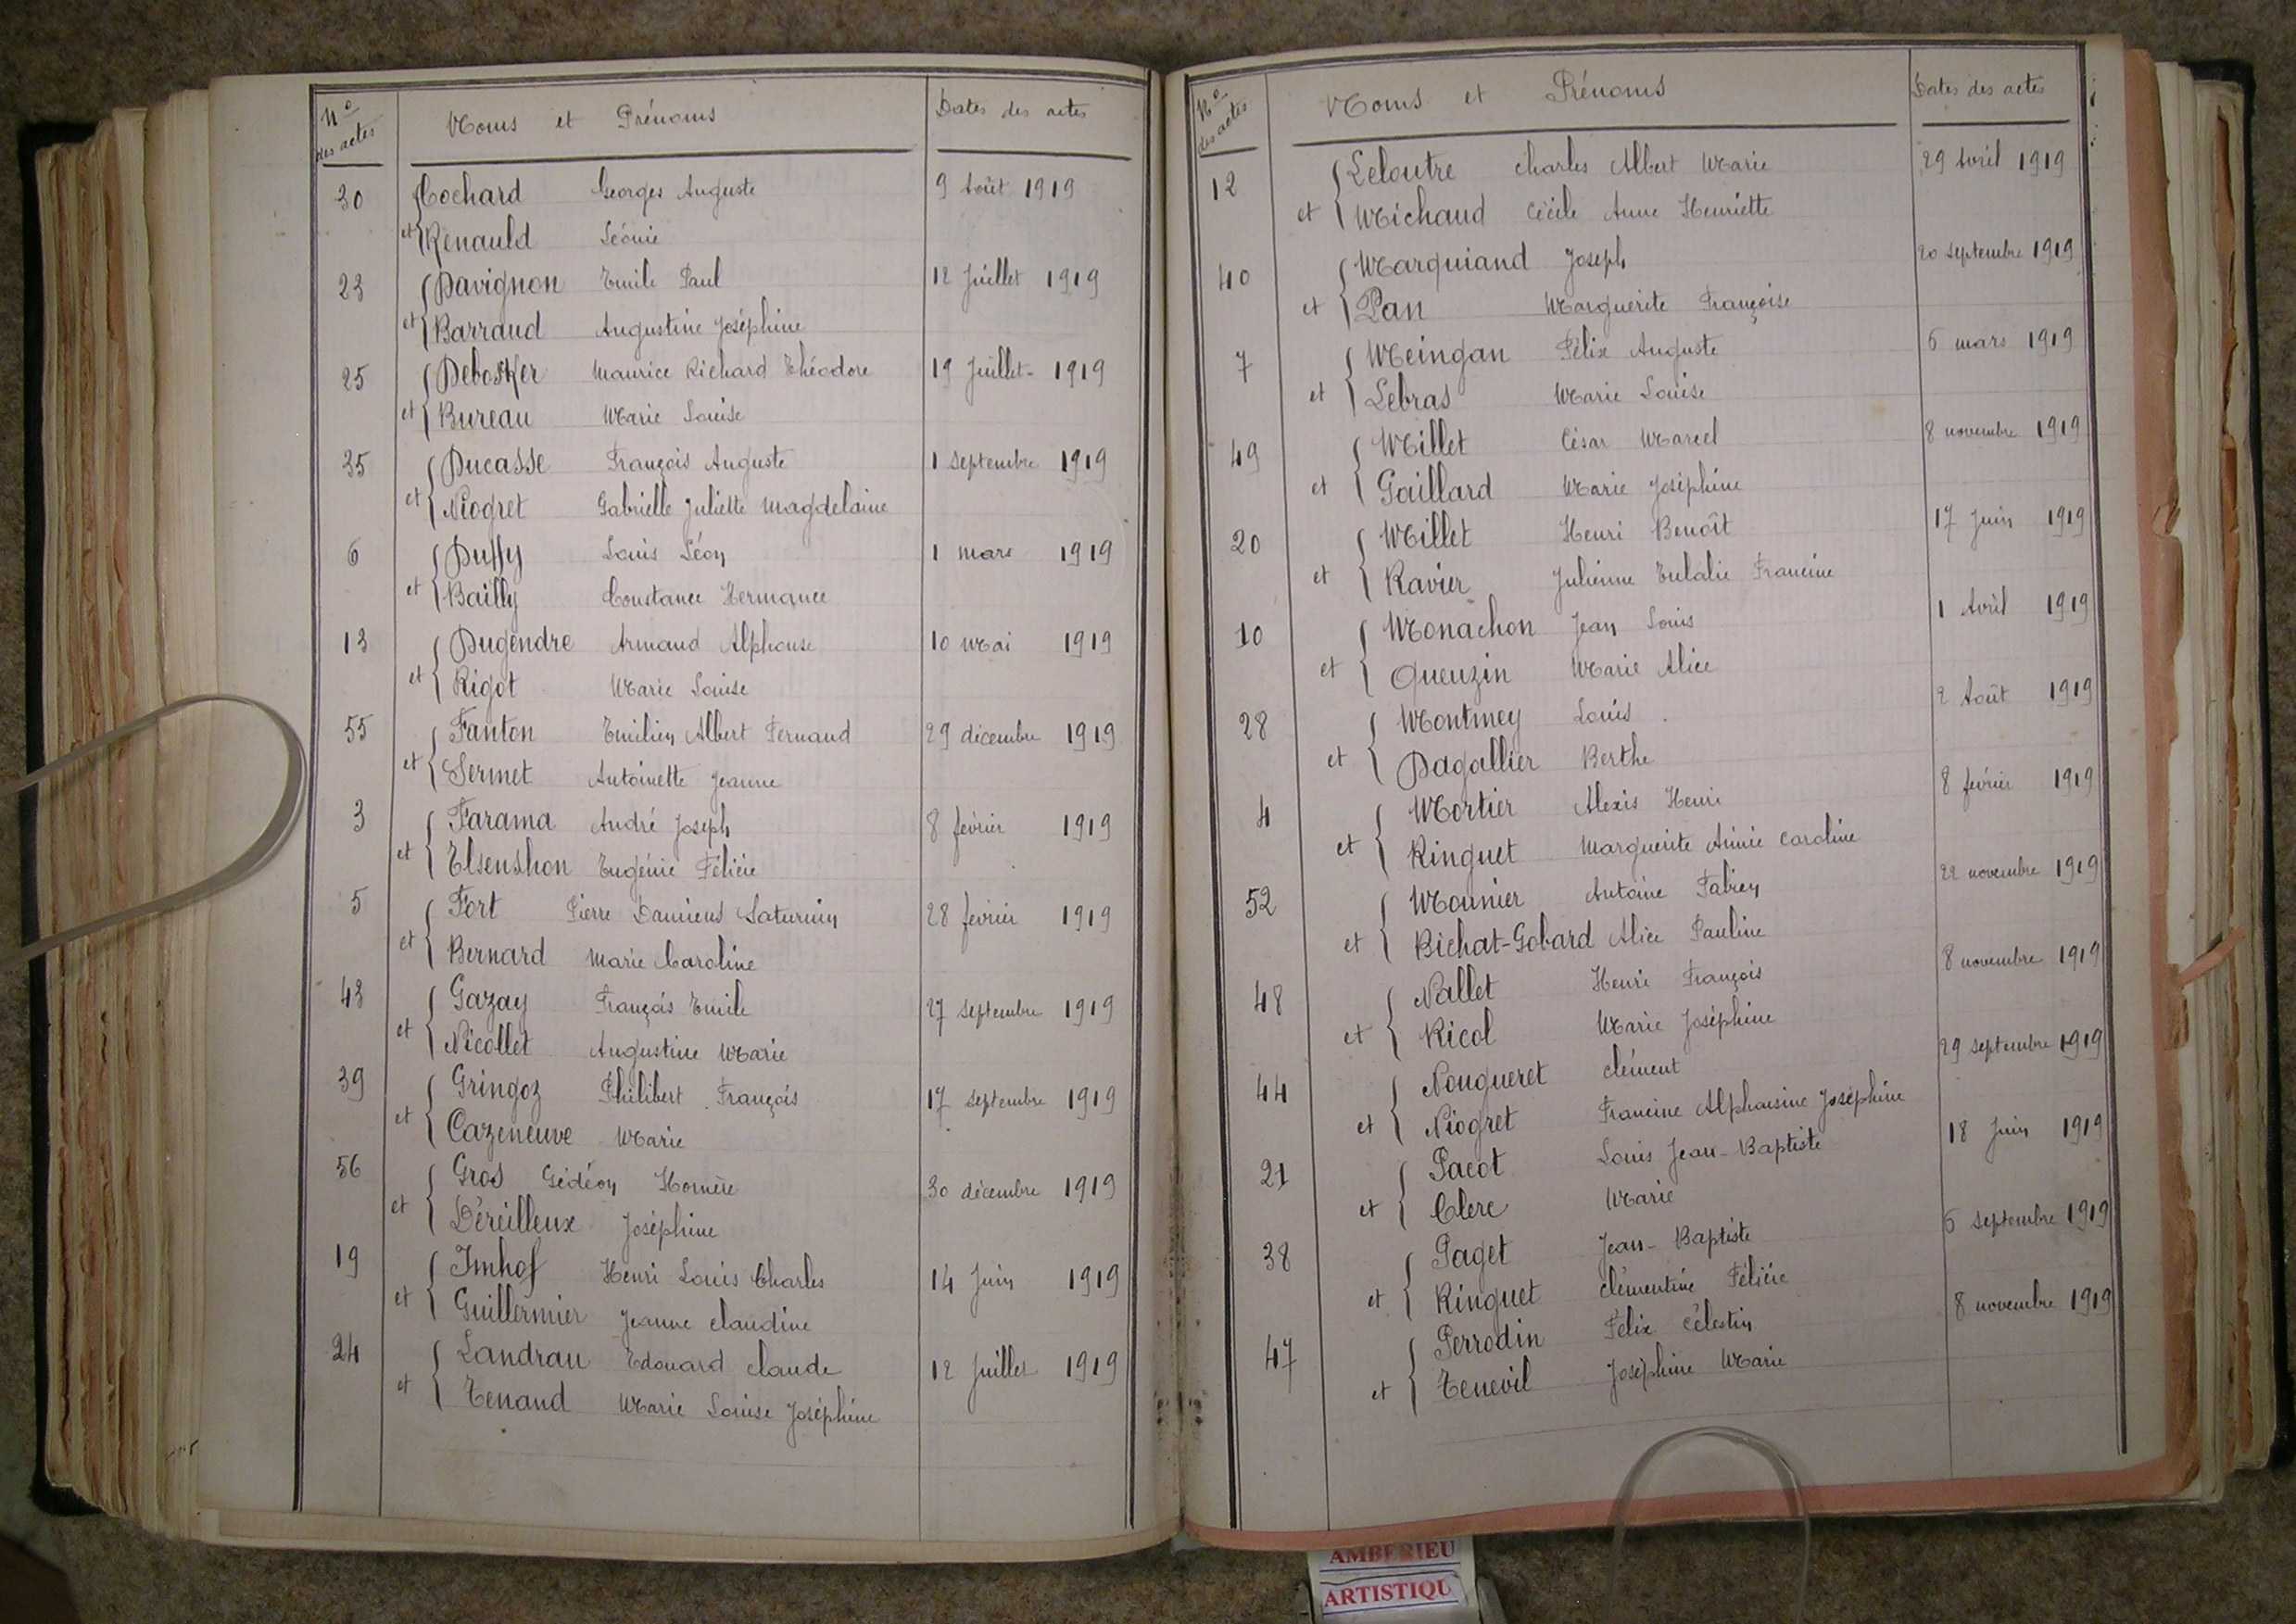 No des actes Noms et Prénoms Dates des actes
30 Cochard Georges Auguste 9 Août 1919
et Renauld Léonie
23 Davignon Emile Paul 12 Juillet 1919
et Barraud Augustine Joséphine
25 Debosker Maurice Richard Théodore 19 Juillet 1919
et Bureau Marie Louise
35 Ducasse François Auguste 1 septembre 1919
et Niogret Gabrielle Juliette Magdelaine
6 Duffy Louis Léon 1 mars 1919
et Bailly Constance Hermance
13 Dugendre Armand Alphonse 10 Mai 1919
et Rigot Marie Louise
55 Fanton Emilien Albert Fernand 29 décembre 1919
et Sermet Antoinette Jeanne
3 Farama André Joseph 8 février 1919
et Elsenshon Eugénie Félicie
5 Fort Pierre Damiens Saturnin 28 février 1919
et Bernard Marie Caroline
43 Gazay François Emile 27 septembre 1919
et Nicollet Augustine Marie
39 Gringoz Philibert François 17 septembre 1919
et Cazeneuve Marie
56 Gros Gédéon Homère 30 décembre 1919
et Déreilleux Joséphine
19 Imhof Henri Louis Charles 14 Juin 1919
et Guillermier Jeanne Claudine
24 Landrau Edouard Claude 12 Juillet 1919
et Tenand Marie Louise Joséphine
No des actes Noms et Prénoms Dates des actes
12 Leloutre Charles Albert Marie 29 Avril 1919
et Michaud Cécile Anne Henriette
40 Marquiand Joseph 20 septembre 1919
et Pan Marguerite Françoise
7 Meingan Félix Auguste 6 mars 1919
et Lebras Marie Louise
49 Millet César Marcel 8 novembre 1919
et Gaillard Marie Joséphine
20 Millet Henri Benoît 17 Juin 1919
et Ravier Julienne Eulalie Francine
10 Monachon Jean Louis 1 Avril 1919
et Queuzin Marie Alice
28 Montmey Louis 2 Août 1919
et Dagallier Berthe
4 Mortier Alexis Henri 8 février 1919
et Ringuet Marguerite Aimée Caroline
52 Mounier Antoine Fabien 22 novembre 1919
et Bichat-Gobard Alice Pauline
48 Nallet Henri François 8 novembre 1919
et Ricol Marie Joséphine
44 Nougueret Clément 29 septembre 1919
et Niogret Francine Alphonsine Joséphine
21 Pacot Louis Jean-Baptiste 18 Juin 1919
et Clerc Marie
38 Paget Jean-Baptiste 6 septembre 1919
et Ringuet Clémentine Félicie
47 Perrodin Félix Célestin 8 novembre 1919
et Tenevil Joséphine Marie
AMBERIEU
ARTISTIQU